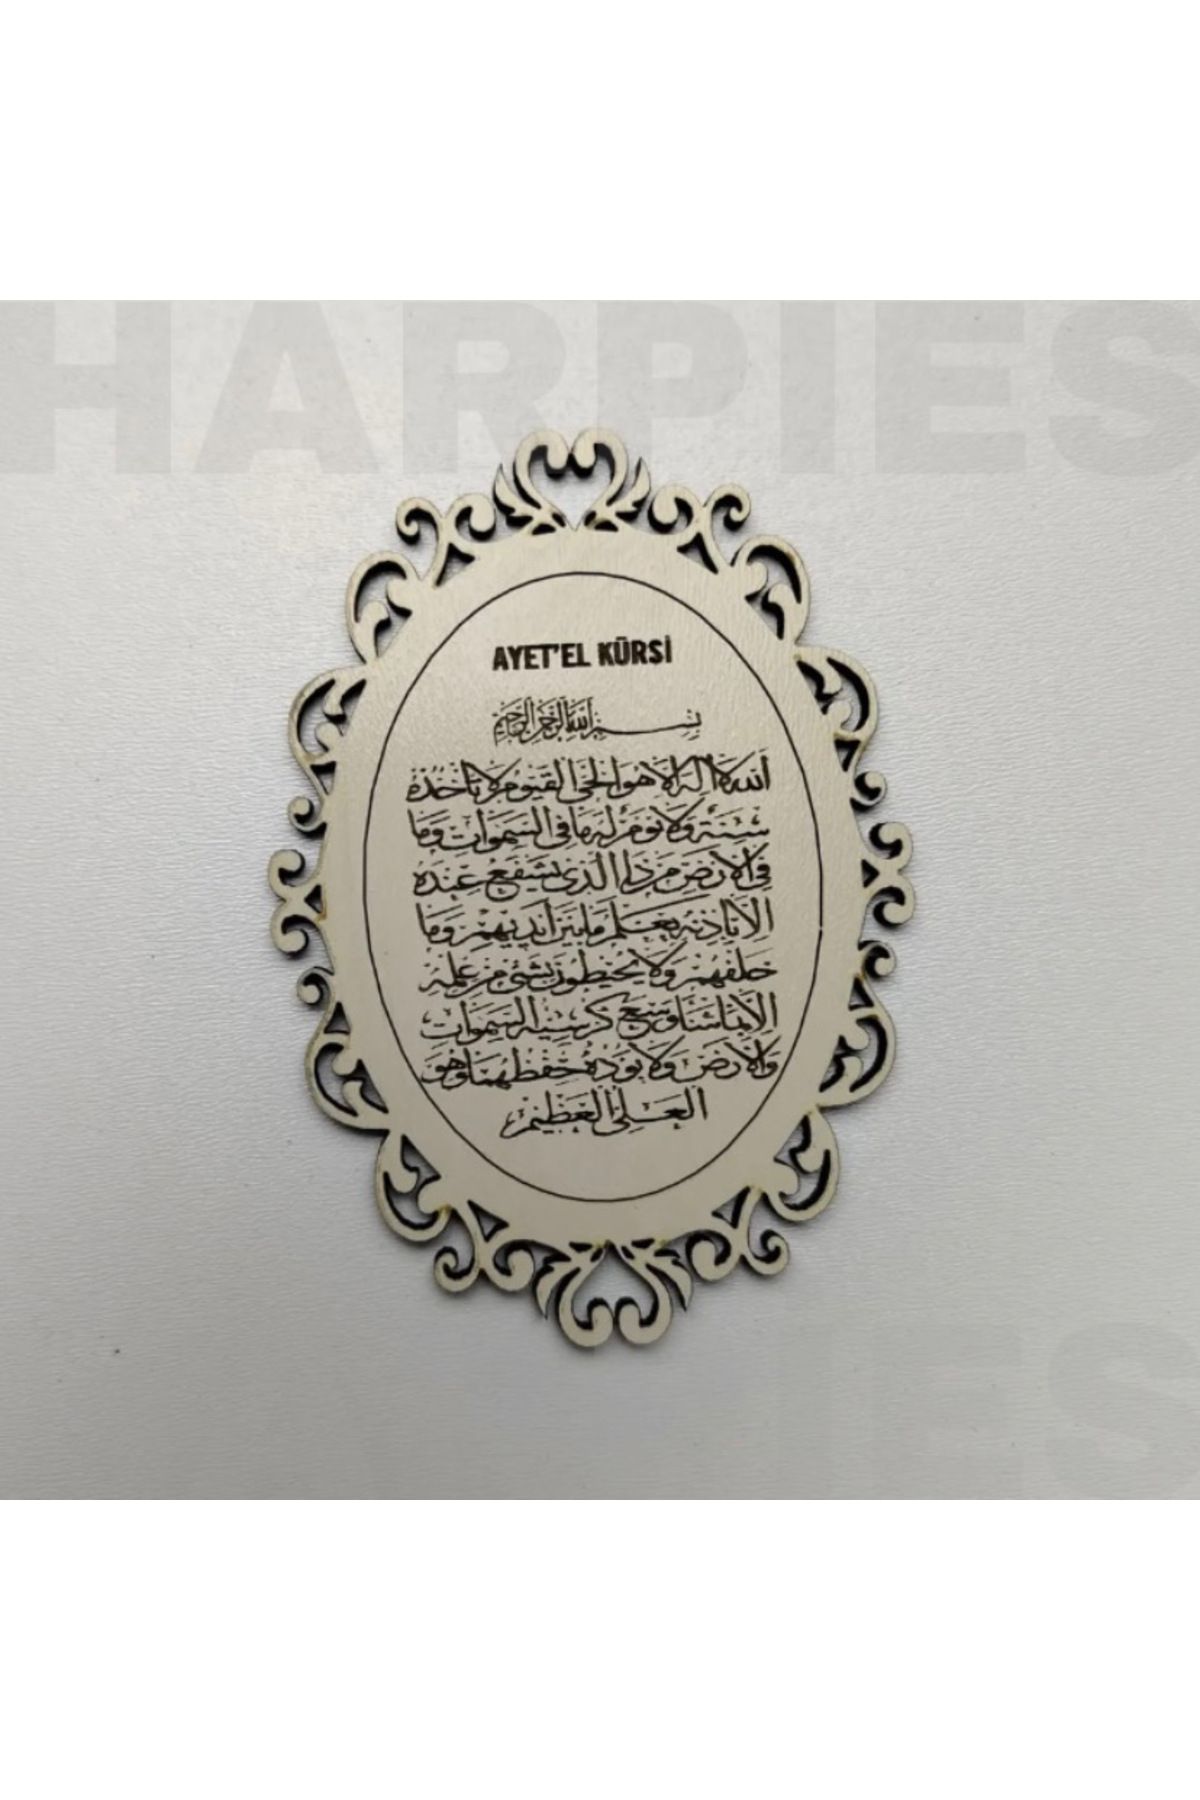 HARPIES
AYET'EL KÜRSİ
بسم الله الرحمن الرحيم
الله لا اله الا هو الحي القيوم لا تأخذه
سنة ولا نوم له ما في السموات وما
في الارض من ذا الذي يشفع عنده
الا باذنه يعلم ما بين ايديهم وما
خلفهم ولا يحيطون بشئ من علمه
الا بما شاء وسع كرسيه السموات
والارض ولا يؤده حفظهما وهو
العلي العظيم
IES